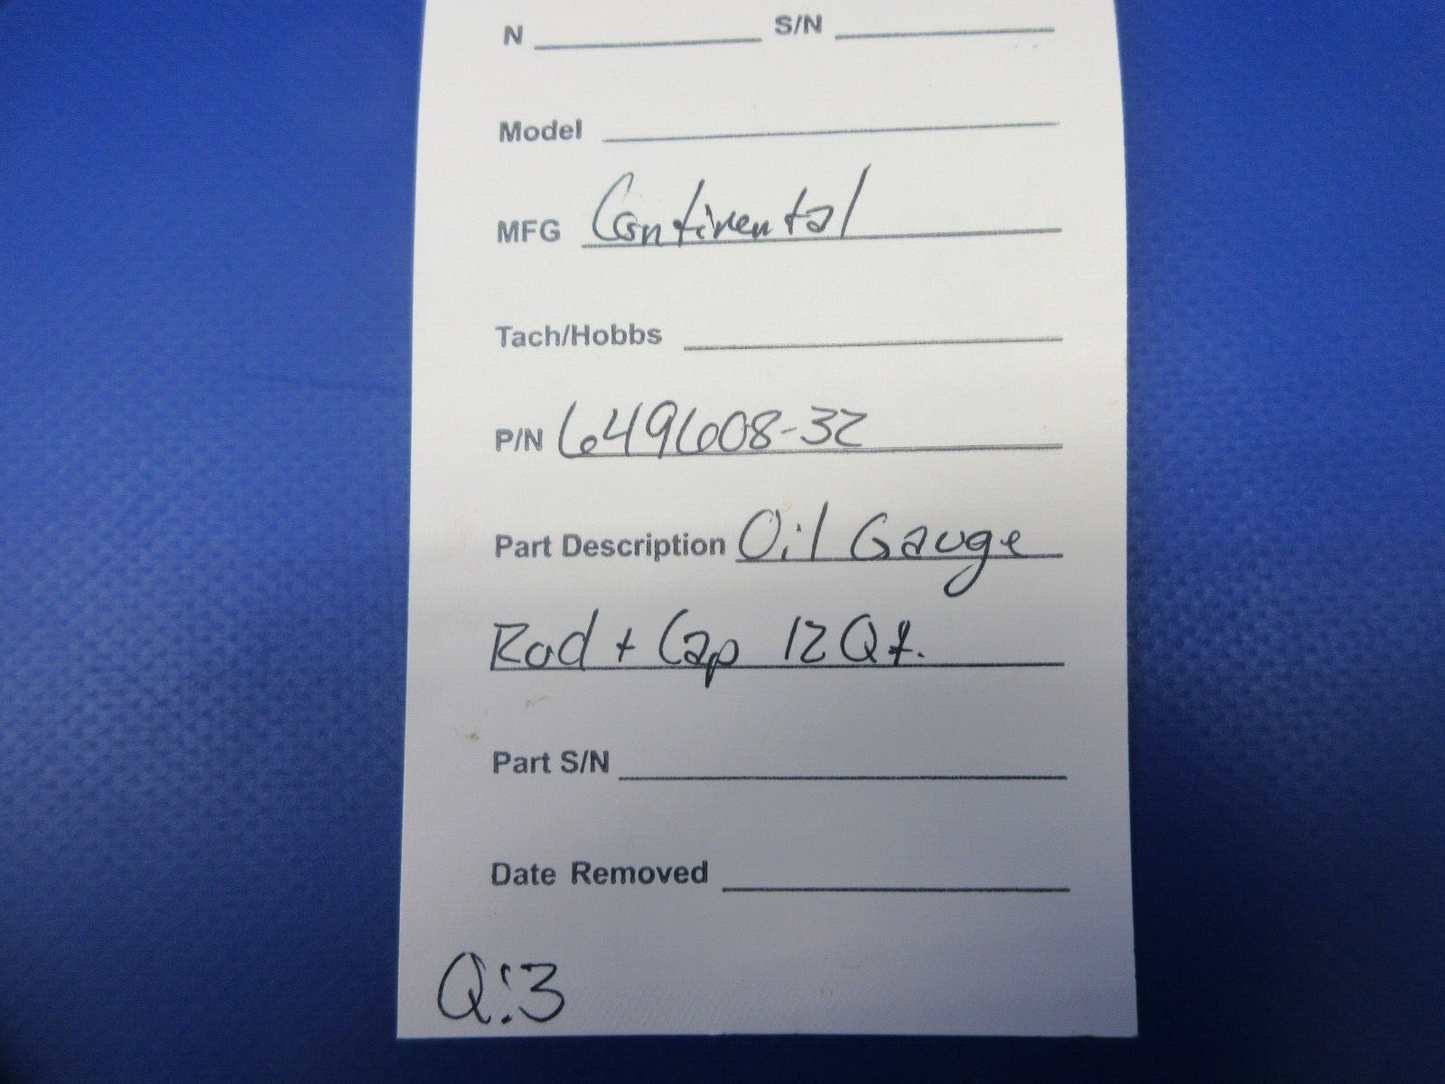 N S/N
Model
MFG Continental
Tach/Hobbs
P/N 649608-32
Part Description Oil Gauge
Rod + Cap 12 Qt.
Part S/N
Date Removed
Q:3